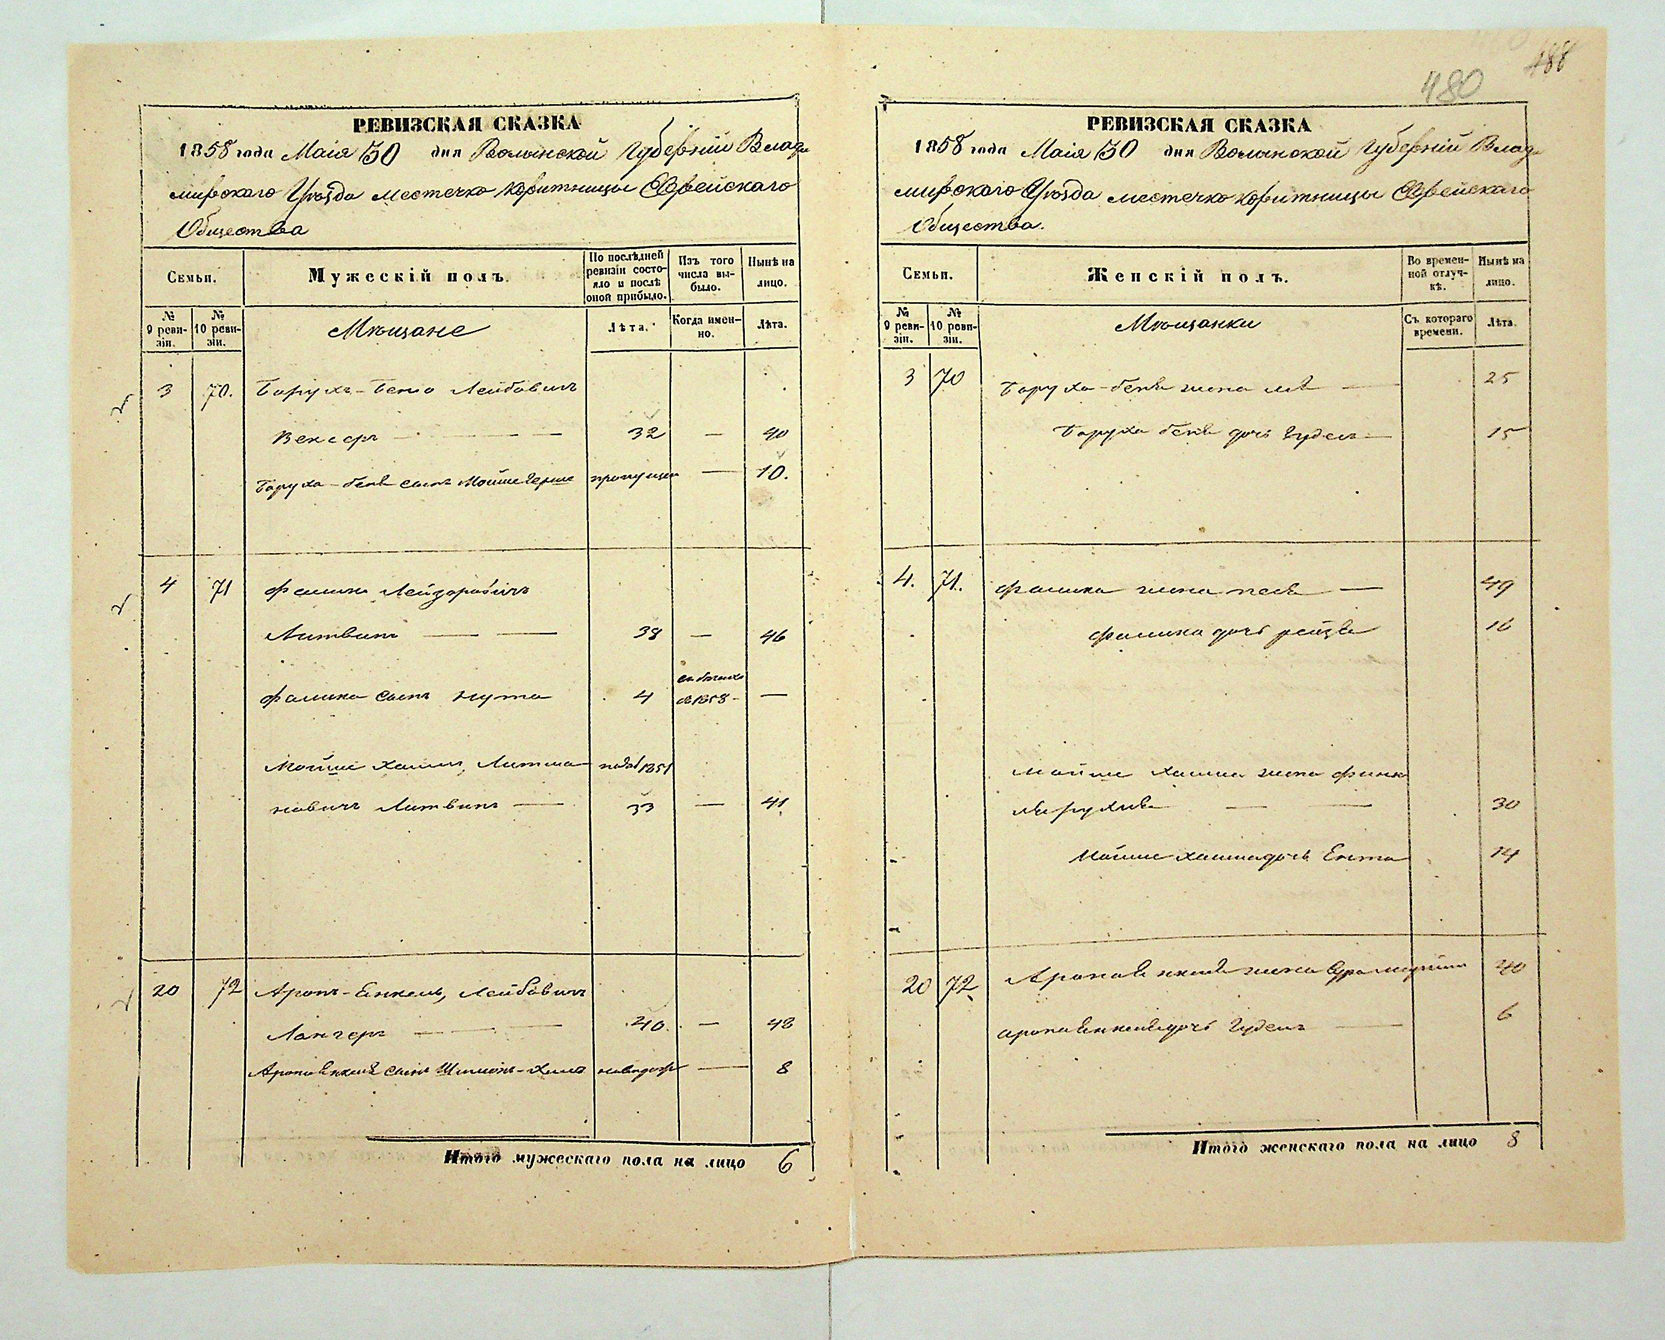 488
480
РЕВИЗСКАЯ СКАЗКА
1858 года Маія 30 дня Волынской Губерніи Влади
мирскаго Уѣзда местечко Корытницы Еврейскаго
Общества
Семьи.
Мужескій полъ.
По послѣдней ревизіи состояло и послѣ оной прибыло.
Изъ того числа выбыло.
Нынѣ на лицо.
№ 9 ревизіи.
№ 10 ревизіи.
Мѣщане
Лѣта.
Когда именно.
Лѣта.
3 70. Борухъ-Беню Лейбовичъ
Векслръ 32 — 40
Боруха-беня сынъ Мойше Герше пропущен — 10.
4 71 Фалика Лейзоровичъ
Литвинъ — — 38 — 46
Фалика сынъ Нута 4 1858 —
Мойше Хаимъ Литма- 1851
новичъ Литвинъ — 33 — 41
20 72 Аронъ-Енкель Лейбовичъ
Лангеръ — — 40. — 48
Арона Енкеля сынъ Шлиомъ- новорож — 8
Итого мужескаго пола на лицо 6
РЕВИЗСКАЯ СКАЗКА
1858 года Маія 30 дня Волынской Губерніи Влади
мирскаго Уѣзда местечко Корытницы Еврейскаго
Общества.
Семьи.
Женскій полъ.
Во временной отлучкѣ.
Нынѣ на лицо.
№ 9 ревизіи.
№ 10 ревизіи.
Мѣщанки
Съ котораго времени.
Лѣта.
3 70 Боруха-беня жена — 25
Боруха беня дочь Гудель — 15
4. 71. Фалика жена Песя — 49
Фалика дочь Рейзя 16
Мойше Хаима жена
— — 30
Мойше Хаима дочь Ента 14
20 72 Арона Енкеля жена 40
Арона Енкеля дочь Гудель — 6
Итого женскаго пола на лицо 8